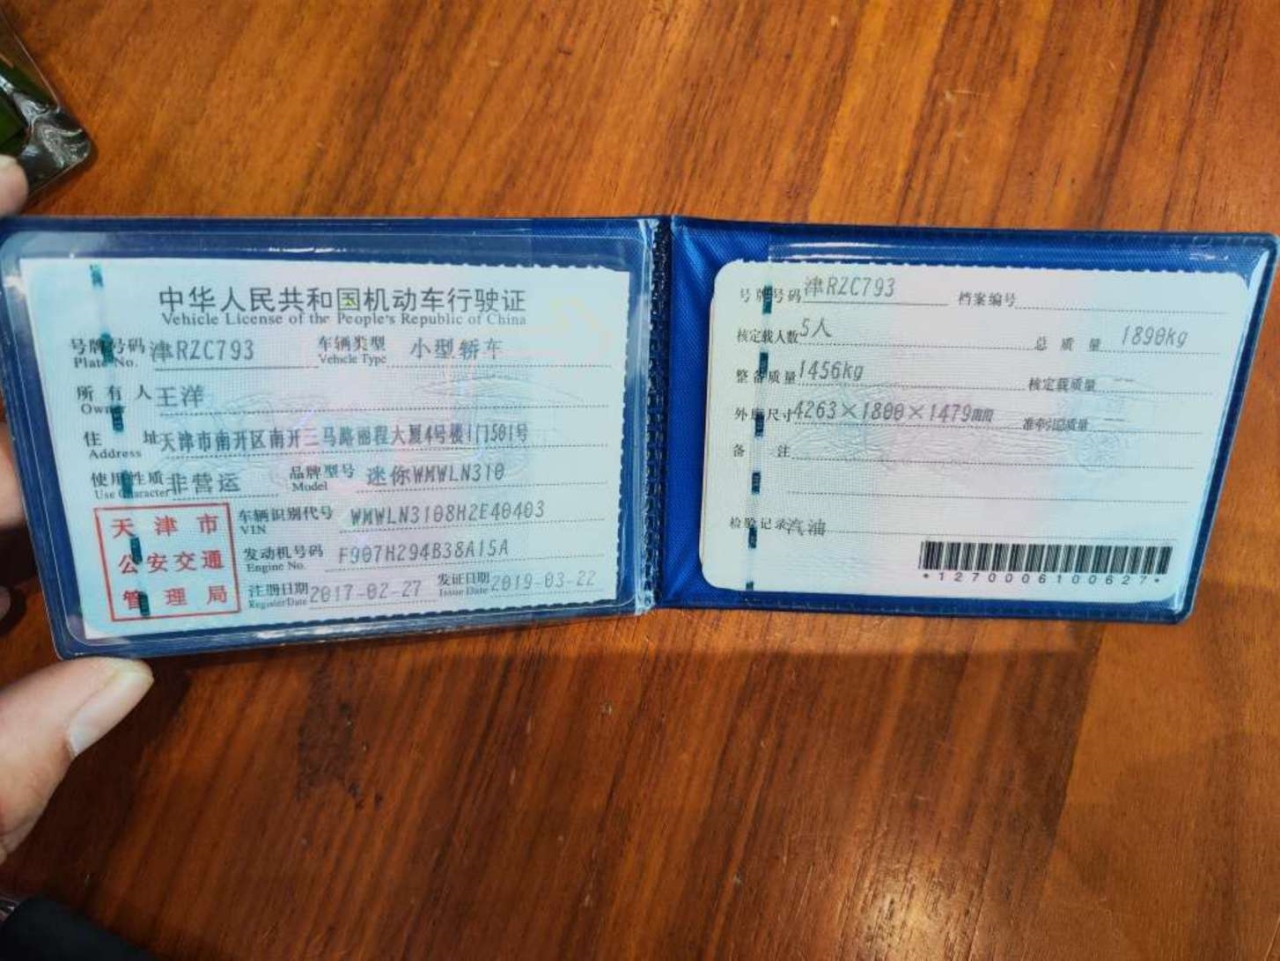 中华人民共和国机动车行驶证
Vehicle License of the People's Republic of China
号牌号码 津RZC793 车辆类型 小型轿车
Plate No. Vehicle Type
所有人 王洋
Owner
住址 天津市南开区南开三马路丽程大厦4号楼1门1501号
Address
使用性质 非营运 品牌型号 迷你WMWLN310
Use Character Model
天津市
公安交通
管理局
车辆识别代号 WMWLN3108H2E40403
VIN
发动机号码 F907H294B38A15A
Engine No.
注册日期 2017-02-27 发证日期 2019-03-22
Register Date Issue Date
号牌号码 津RZC793 档案编号
核定载人数 5人 总质量 1890kg
整备质量 1456kg 核定载质量 --
外廓尺寸 4263×1800×1479mm 准牵引总质量 --
备注
检验记录 汽油
*1270006100627*